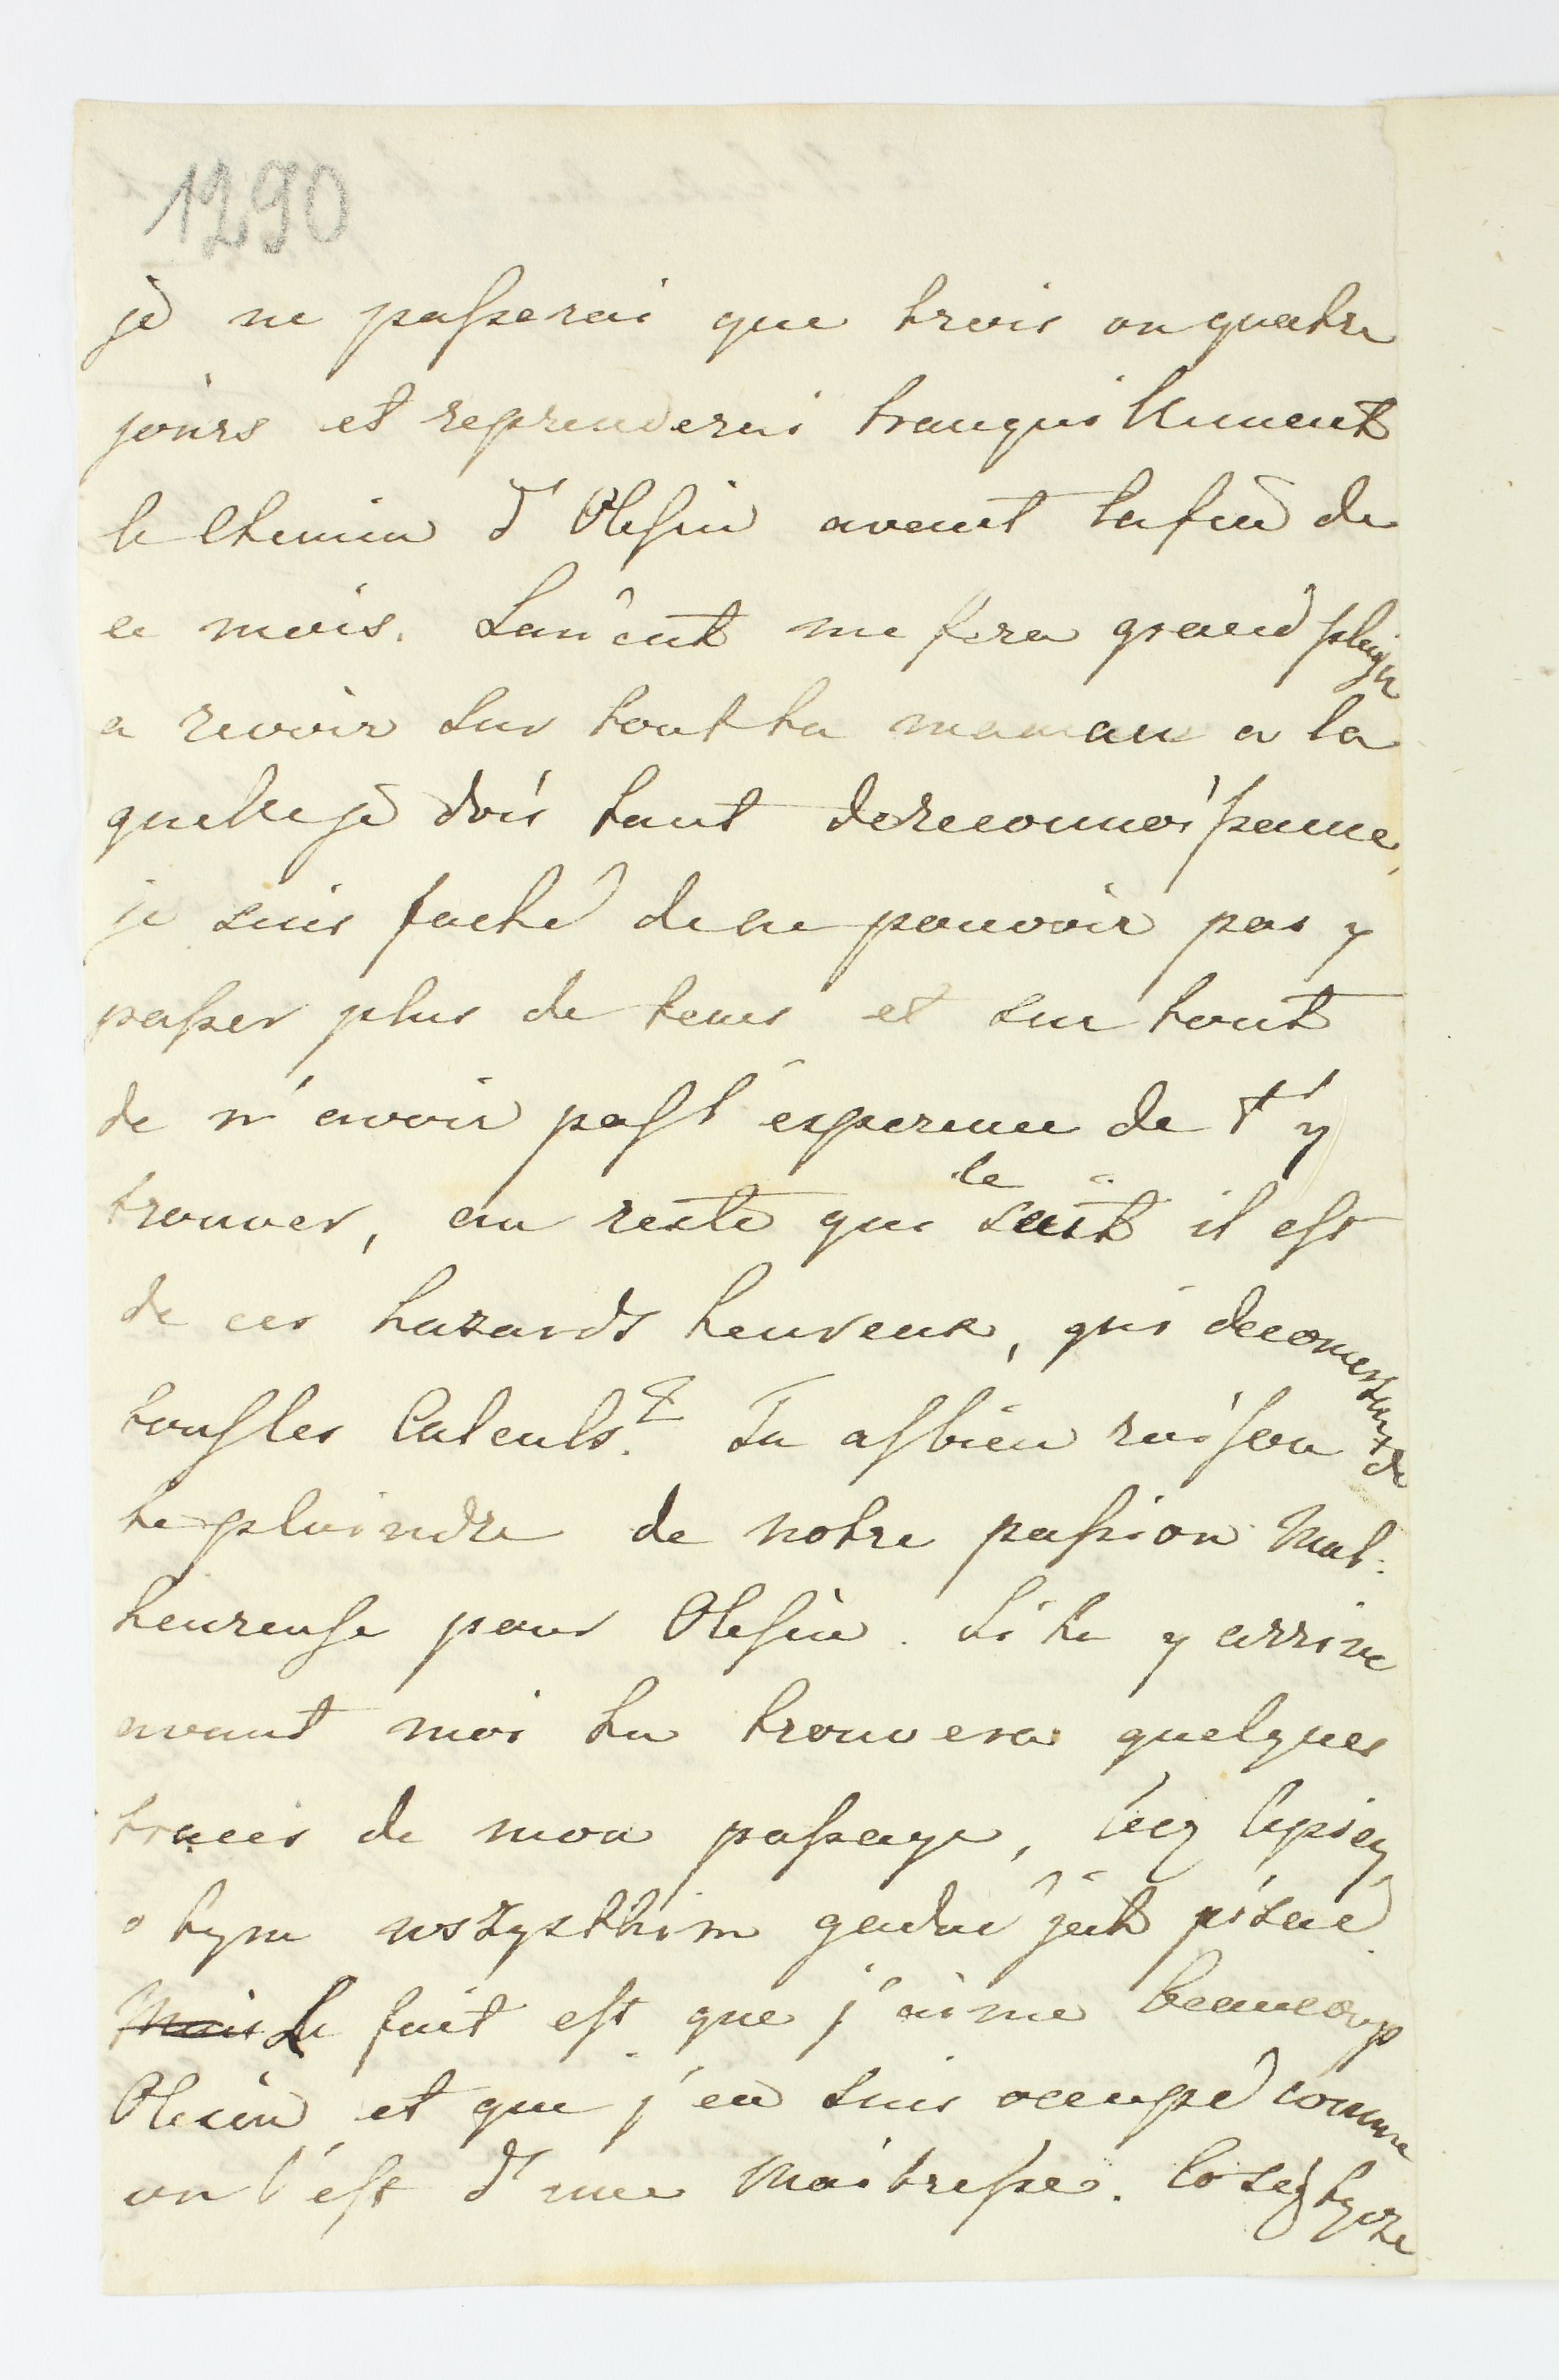 1290
je ne passerai que trois ou quatre
jours et reprenderai tranquillement
le Chemin d'Olesin avant la fin de
ce mois. Lancut me fera grand plaisir
a revoir sur tout ta maman a la
quelle je dois tant de reconnoissance,
je suis faché de ne pouvoir pas y
passer plus de tems et sur tout
de n'avoir pas l'esperence de t'y
trouver, au reste qui le sait il est
de ces hazards heureux, qui deconcertent
tous les Calculs. Tu as bien raison de
te plaindre de notre passion mal-
heureuse pour Olesin. Si tu y arrive
avant moi tu trouvera quelques
traces de mon passage, lecz lepiey
o tym wszystkim gadac jak pisac
Mais Le fait est que j'aime beaucoup
Olesin et que j'en suis occupé comme
on l'est d'une Maitresse. Co się tycze